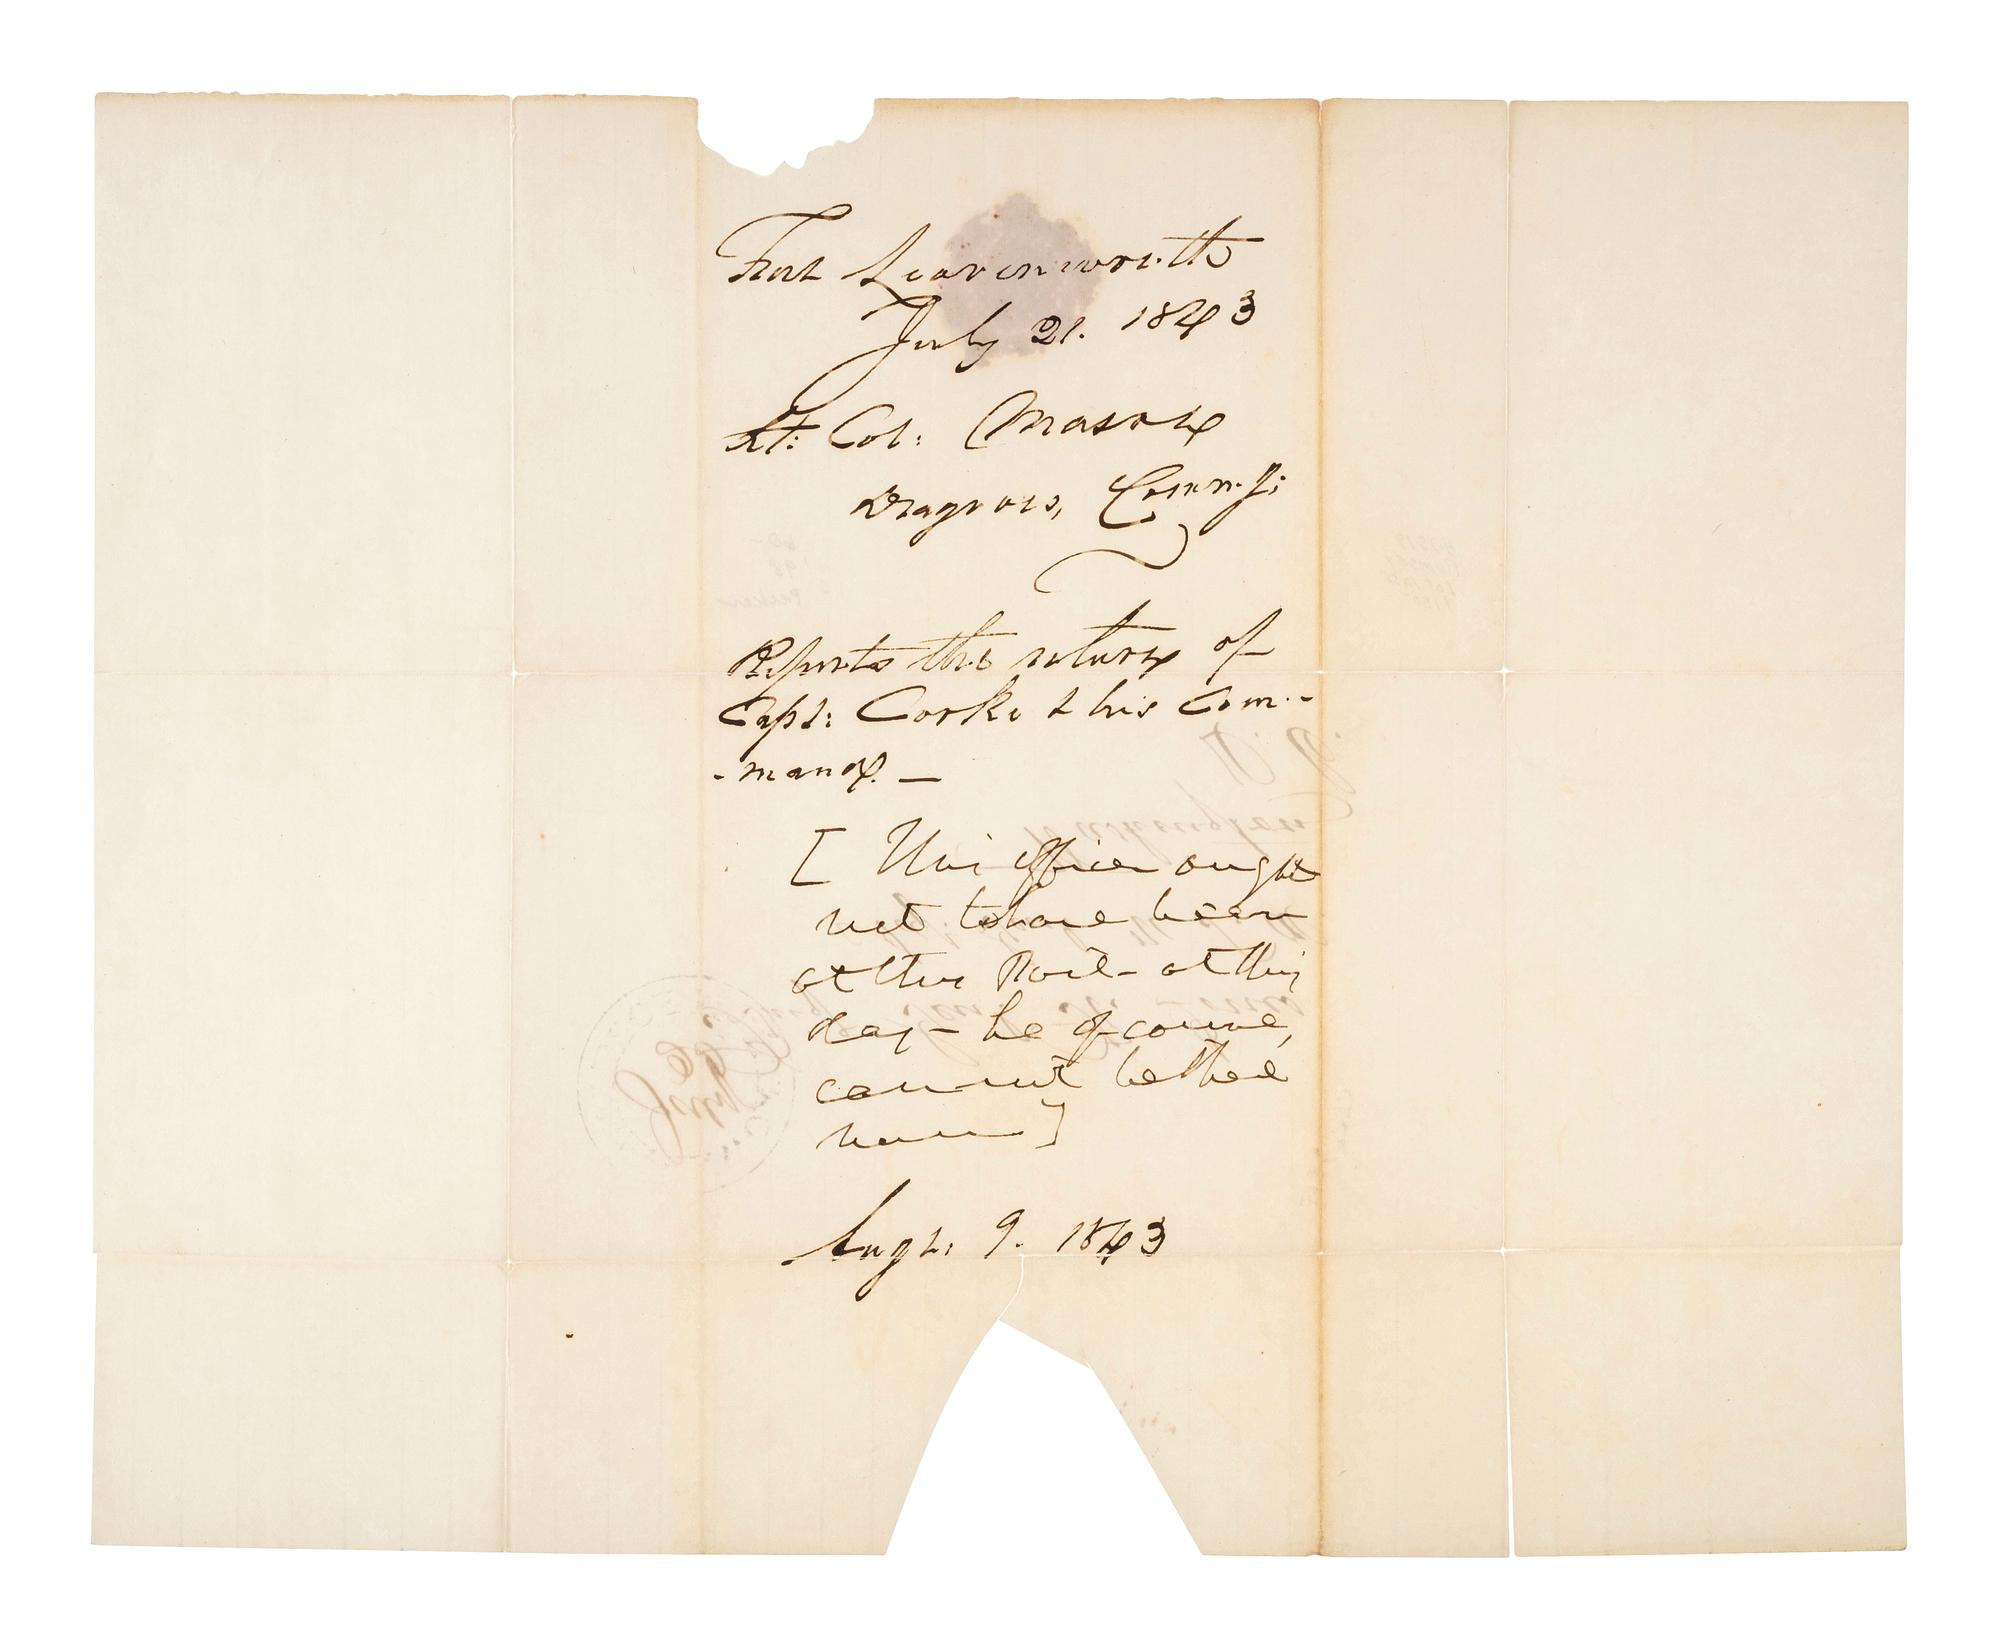 Fort Leavenworth
July 21. 1843
Lt: Col: Mason
Dragoons, Comm'g:
Reports the return of
Capt: Cooke & his Com-
-mand. —
[ This officer ought
not to have been
at this Post - at this
day - he of course,
cannot be there
now ]
Augt: 9. 1843